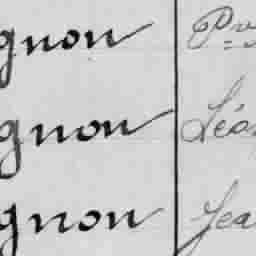 gnon
gnon Léo
gnon Jea